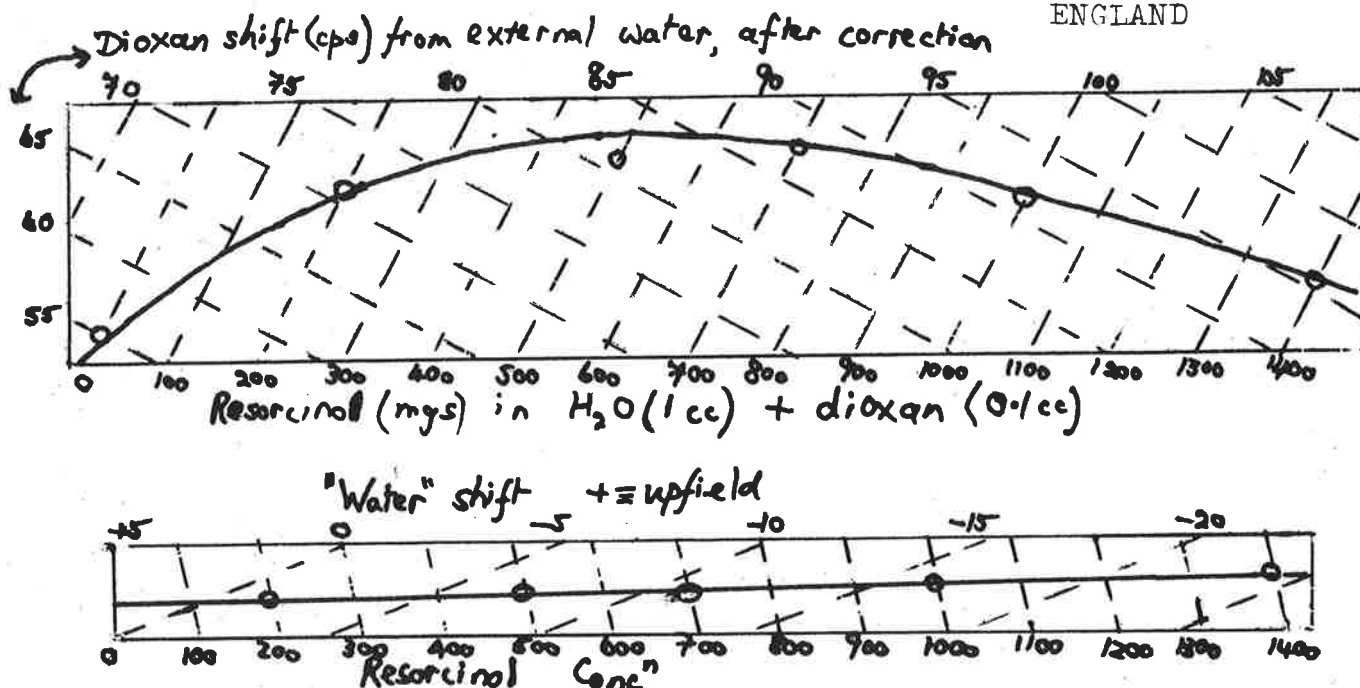 ENGLAND
Dioxan shift (cps) from external water, after correction
70 75 80 85 90 95 100 105
65
60
55
0 100 200 300 400 500 600 700 800 900 1000 1100 1200 1300 1400
Resorcinol (mgs) in H₂O (1 cc) + dioxan (0·1 cc)
"Water" shift + ≡ upfield
+5 0 -5 -10 -15 -20
0 100 200 300 400 500 600 700 800 900 1000 1100 1200 1300 1400
Resorcinol Concⁿ